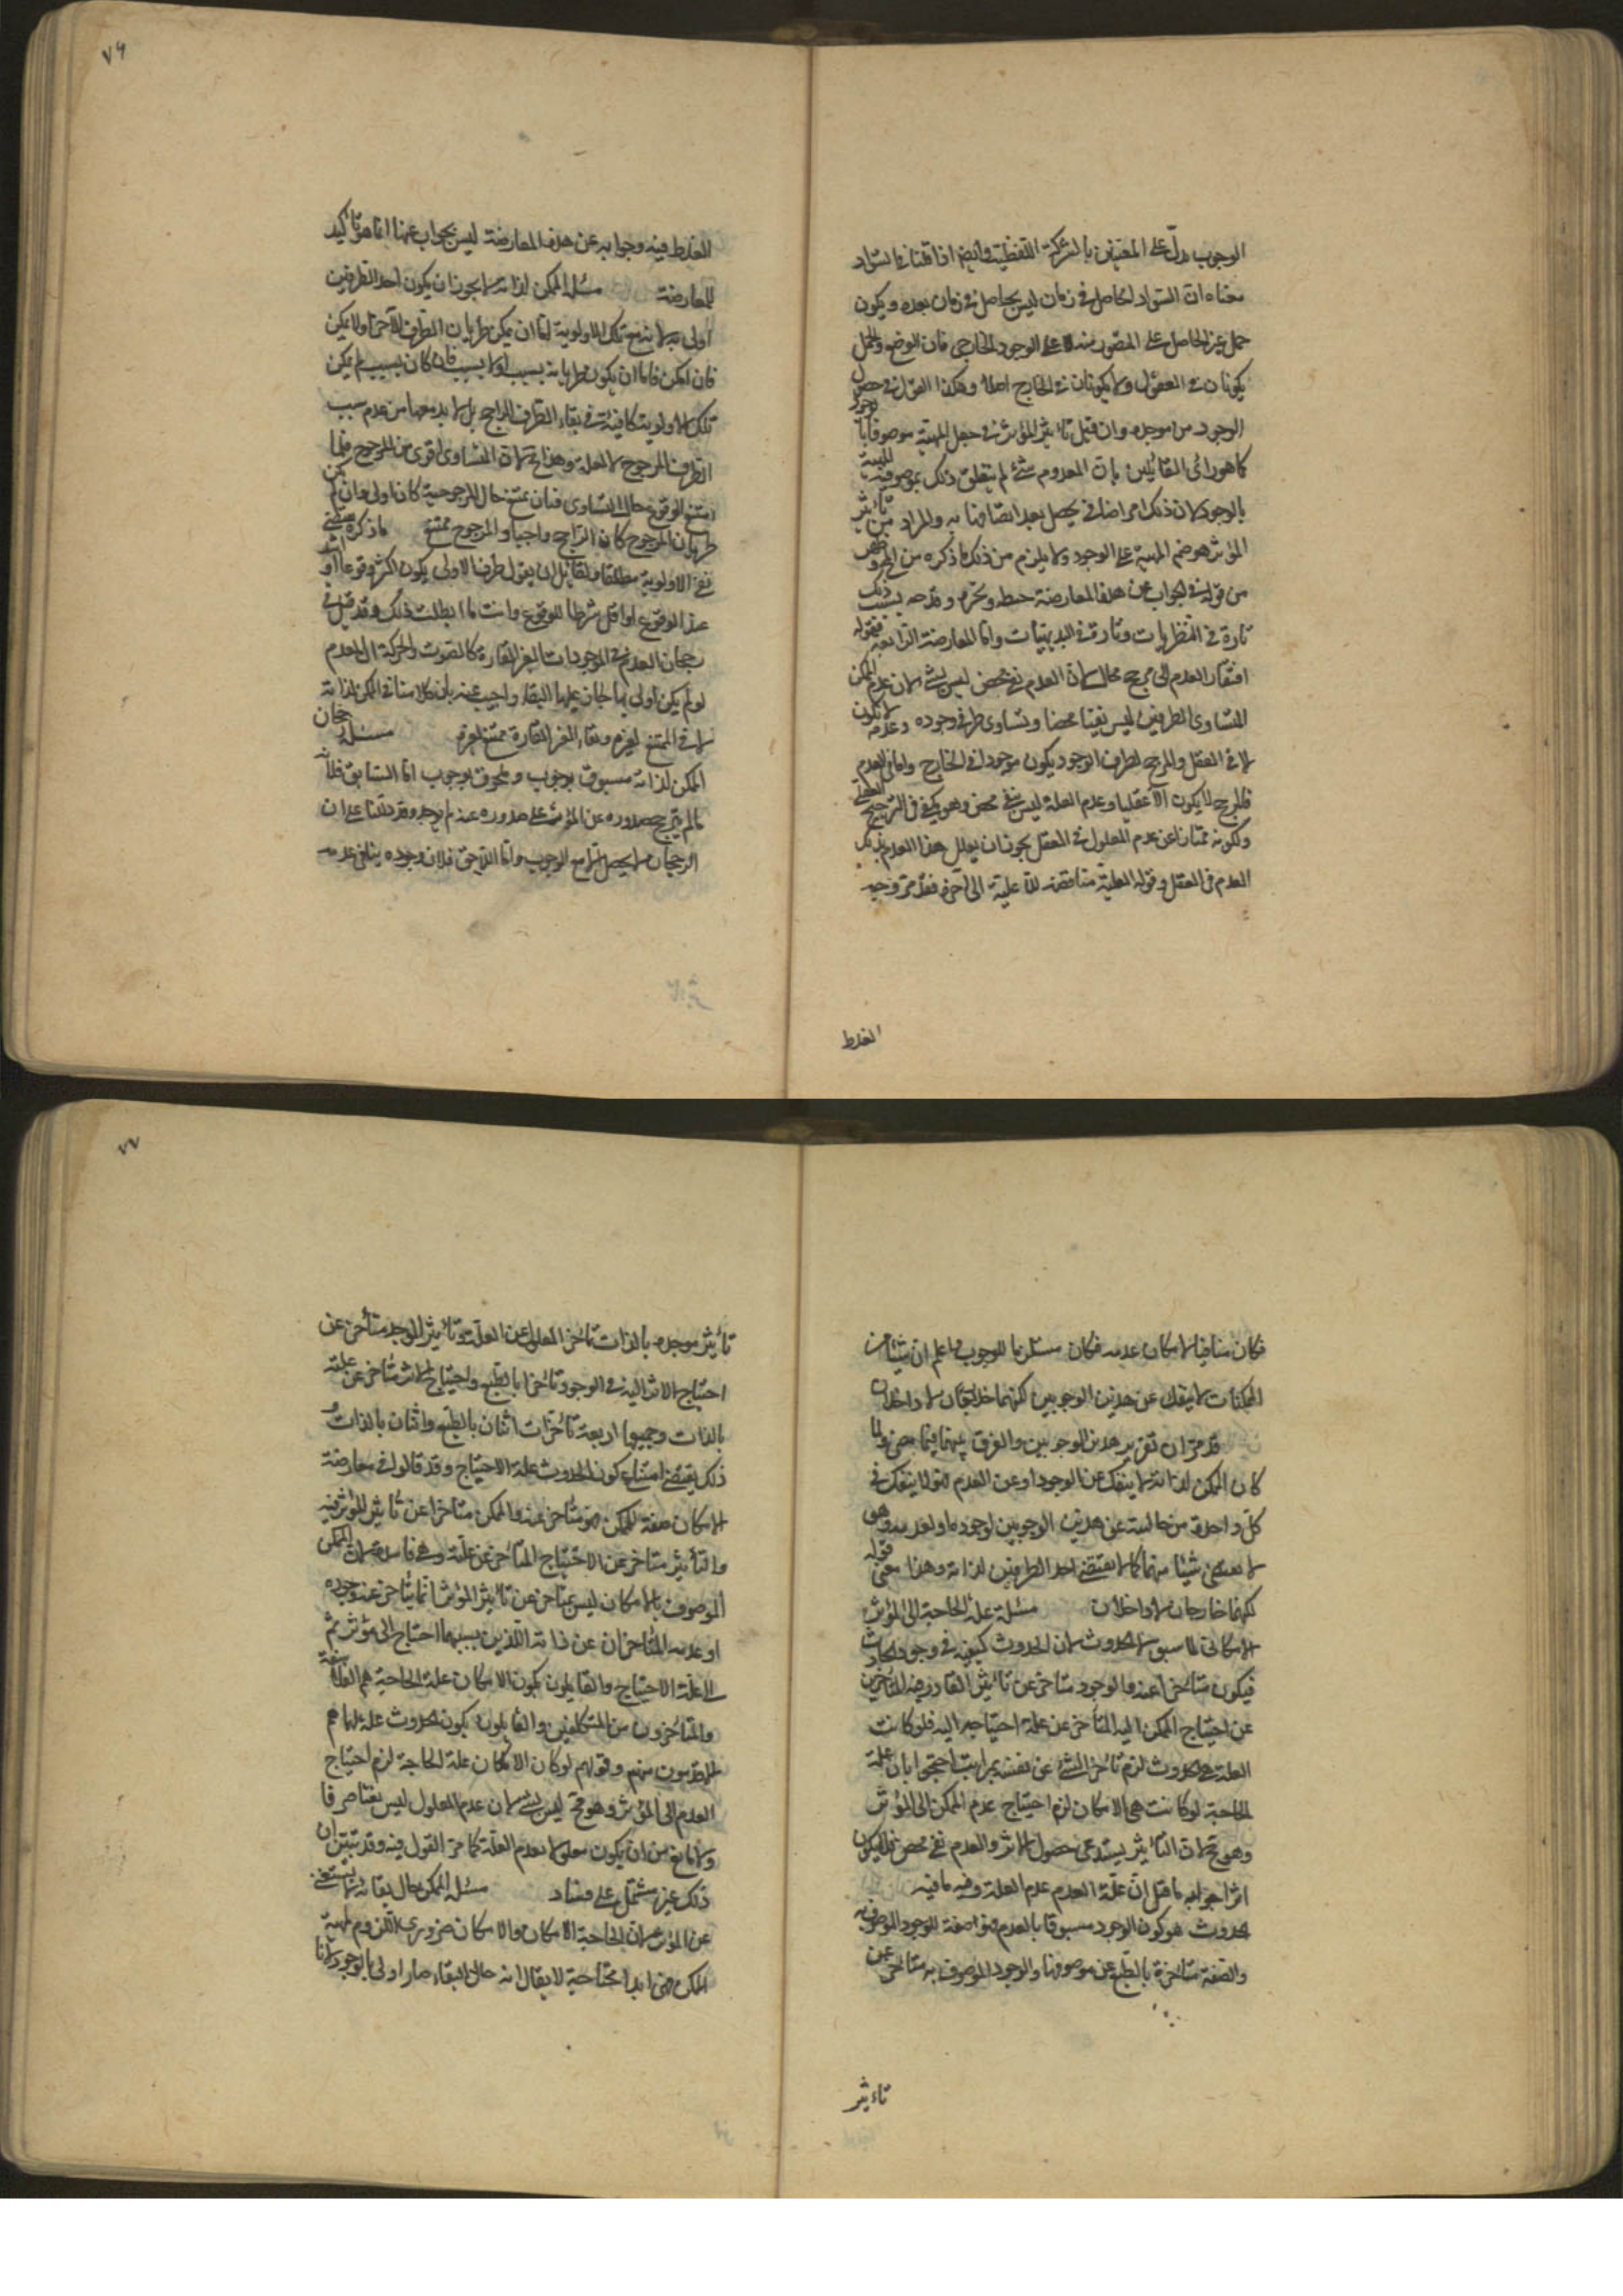 الوجوب يدلّ على المعنيين بالشركة اللفظية وايضا اذا قلنا في السواد
معناه ان السواد الحاصل في زمان ليس بحاصل في زمان بعده ويكون
حمل غير الحاصل على المتصور منه لا على الوجود الخارجي فان الوضع والحمل
يكونان في العقول ولا يكونان في الخارج اصلا وهكذا القول في حصول
الوجود من موجده وان قيل تاثير المؤثر في جعل المهية موصوفا بالوجود
كما هو رأى القائلين بان المعدوم شئ لم يتعلق ذلك بموصوفية المهية
بالوجود لان ذلك امر اضافي يحصل بعد اتصافها به والمراد من تأثير
المؤثر هو ضم المهية على الوجود ولا يلزم من ذلك ما ذكره من
من قوله في الجواب عن هذه المعارضة خبط وقدحه بسبب ذلك
تارة في النظريات وتارة في البديهيات واما المعارضة الرابعة فقوله
افتقار العدم الى مرجح محال لان العدم نفي محض ليس بشئ لان عدم الممكن
المتساوى الطرفين ليس نفيا محضا وتساوى طرفي وجوده وعدمه لا يكون
الا في العقل والمرجح لطرف الوجود يكون موجودا في الخارج واما في العدم
فالمرجح لا يكون الا عقليا وعدم العلة ليس بنفي محض وهو يكفي في الترجيح العقلي
ولكونه ممتازا عن عدم المعلول في العقل يجوز ان يعلل هذا العدم بذلك
العدم في العقل وقوله العلية مناقضة للا علية الى آخره فقد مر وجه
الغلط
٧٦
الغلط فيه وجوابه عن هذه المعارضة ليس بجواب عنها انما هو تأكيد
للمعارضة مسئلة الممكن لذاته لا يجوز ان يكون احد الطرفين
اولى به لانه مع تلك الاولوية اما ان يمكن طريان الطرف الآخر او لا يمكن
فان امكن فاما ان يكون طريانه بسبب او لا بسبب فان كان بسبب لم يكن
تلك الاولوية كافية في بقاء الطرف الراجح بل لا بد معها من عدم سبب
الطرف المرجوح لا لعلة وهذا محال لان المتساوى اقوى من المرجوح فلما
امتنع الوقوع حال التساوى فبان يمتنع حال المرجوحية كان اولى وان لم يمكن
طريان المرجوح كان الراجح واجبا والمرجوح ممتنعا ما ذكره يقتضي
نفي الاولوية مطلقا ولقائل ان يقول طرف الاولى يكون اكثر وقوعا او اشد
عند الوقوع او اقل شرطا للوقوع وانت ما ابطلت ذلك وقد قيل في
رجحان العدم في الموجودات الغير القارة كالصوت والحركة ان العدم
لو لم يكن اولى بها لجاز عليها البقاء واجيب عنه بان كلامنا في الممكن لذاته
لا في الممتنع لغيره وبقاء الغير القارة ممتنع لغيره مسئلة رجحان
الممكن لذاته مسبوق بوجوب وملحوق بوجوب اما السابق فلانه
ما لم يترجح صدوره عن المؤثر على لا صدوره عنه لم يوجد وقد دللنا على ان
الرجحان لا يحصل الا مع الوجوب واما اللاحق فلان وجوده ينافي عدمه
فكان منافيا لامكان عدمه فكان مستلزما للوجوب واعلم ان شيئا من
الممكنات لا ينفك عن هذين الوجوبين لكنهما خارجان لا داخلان
قد مر ان تقرير هذين الوجوبين والفرق بينهما فيما مضى ولما
كان الممكن لذاته لا ينفك عن الوجود او عن العدم لم ينفك في
كل واحدة من حالتيه عن هذين الوجوبين لوجوده او لعدمه وهو
لا يقتضى شيئا منهما كما لا يقتضى احد الطرفين لذاته وهذا معنى قوله
لكنهما خارجان لا داخلان مسئلة علة الحاجة الى المؤثر
الامكان لما سبق لا الحدوث لان الحدوث كيفية في وجود الحادث
فيكون متأخرا عنه والوجود متأخر عن تأثير القادر فيه المتأخر
عن احتياج الممكن اليه المتأخر عن علة احتياجه اليه فلو كانت
العلة هي الحدوث لزم تأخر الشئ عن نفسه بمراتب احتجوا بان علة
الحاجة لو كانت هي الامكان لزم احتياج عدم الممكن الى المؤثر
وهو محال لان التأثير يستدعى حصول الاثر والعدم نفي محض فلا يكون
اثرا جوابه ما قيل ان علة العدم عدم العلة وفيه ما فيه
الحدوث هو كون الوجود مسبوقا بالعدم فهو صفة للوجود الموصوف به
والصفة متأخرة بالطبع عن موصوفها والوجود الموصوف به متأخر عن
تأثير
٧٧
تأثير موجده بالذات تأخر المعلول عن العلة وتأثير الموجد متأخر عن
احتياج الاثر اليه في الوجود تأخرا بالطبع واحتياج الاثر متأخر عن علته
بالذات وجميعها اربعة تأخرات اثنان بالطبع واثنان بالذات و
ذلك يقتضى امتناع كون الحدوث علة الاحتياج وقد قالوا في معارضة
الامكان صفة للممكن فهو متأخر عنه والممكن متأخر عن تأثير المؤثر فيه
والتأثير متأخر عن الاحتياج المتأخر عن علته وهي فاسدة لان الممكن
الموصوف بالامكان ليس متأخر عن تأثير المؤثر انما يتأخر عنه وجوده
او عدمه المتأخران عن ذاته اللذين بسببهما احتاج الى مؤثر ثم
الى علة الاحتياج والقائلون بكون الامكان علة الحاجة هم الفلاسفة
والمتأخرون من المتكلمين والقائلون بكون الحدوث علة لها هم
الاقدمون منهم وقولهم لو كان الامكان علة الحاجة لزم احتياج
العدم الى المؤثر وهو محال ليس بشئ لان عدم المعلول ليس نفيا صرفا
ولا مانع من ان يكون معلولا لعدم العلة كما مر القول فيه وقد تبين ان
ذلك غير مشتمل على فساد مسئلة الممكن حال بقائه لا يستغنى
عن المؤثر لان الحاجة الامكان والامكان ضرورى اللزوم لمهية
الممكن فهى ابدا محتاجة لا يقال انه حال البقاء صار اولى بالوجود لانا